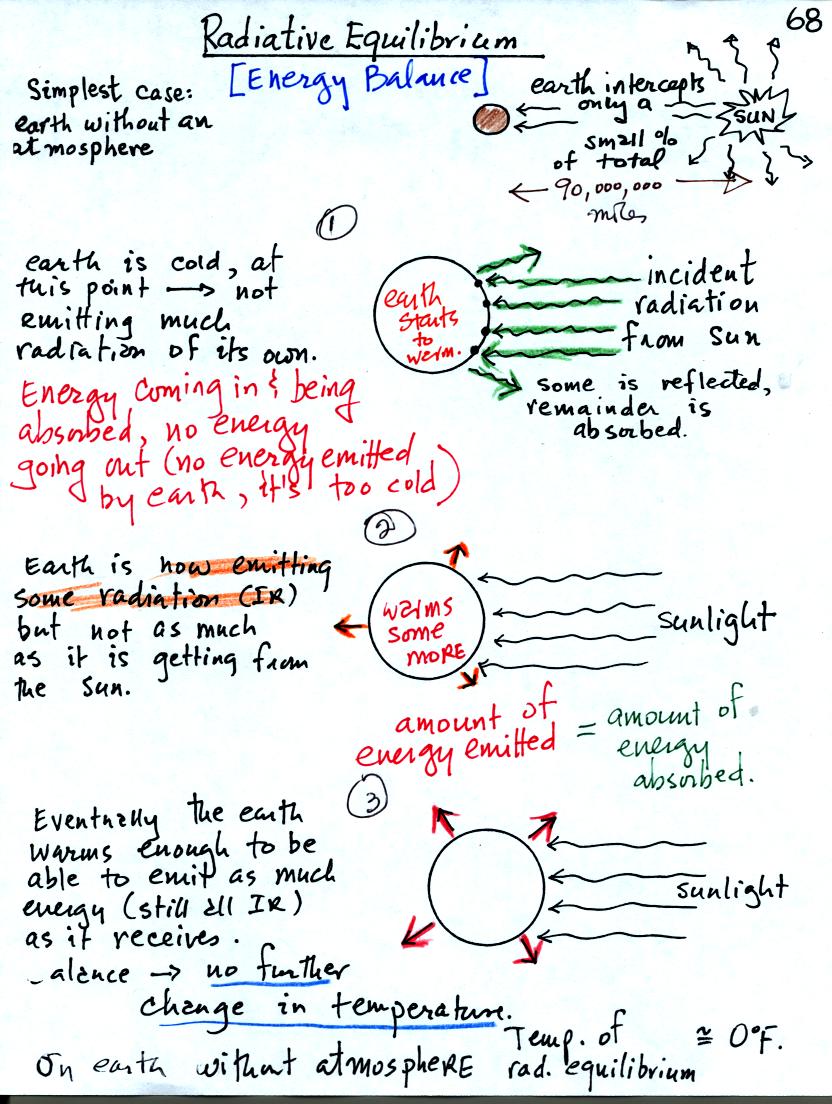 68
Radiative Equilibrium
[Energy Balance]
Simplest case:
earth without an
atmosphere
earth intercepts
only a
small %
of total
SUN
90,000,000
miles
1
earth is cold, at
this point → not
emitting much
radiation of its own.
Energy coming in & being
absorbed, no energy
going out (no energy emitted
by earth, it's too cold)
earth
starts
to
warm.
incident
radiation
from Sun
some is reflected,
remainder is
absorbed.
2
Earth is now emitting
some radiation (IR)
but not as much
as it is getting from
the Sun.
warms
some
MORE
sunlight
amount of
energy emitted
=
amount of
energy
absorbed.
3
Eventually the earth
warms enough to be
able to emit as much
energy (still all IR)
as it receives.
alance → no further
change in temperature.
sunlight
On earth without atmosphere Temp. of
rad. equilibrium ≅ 0°F.